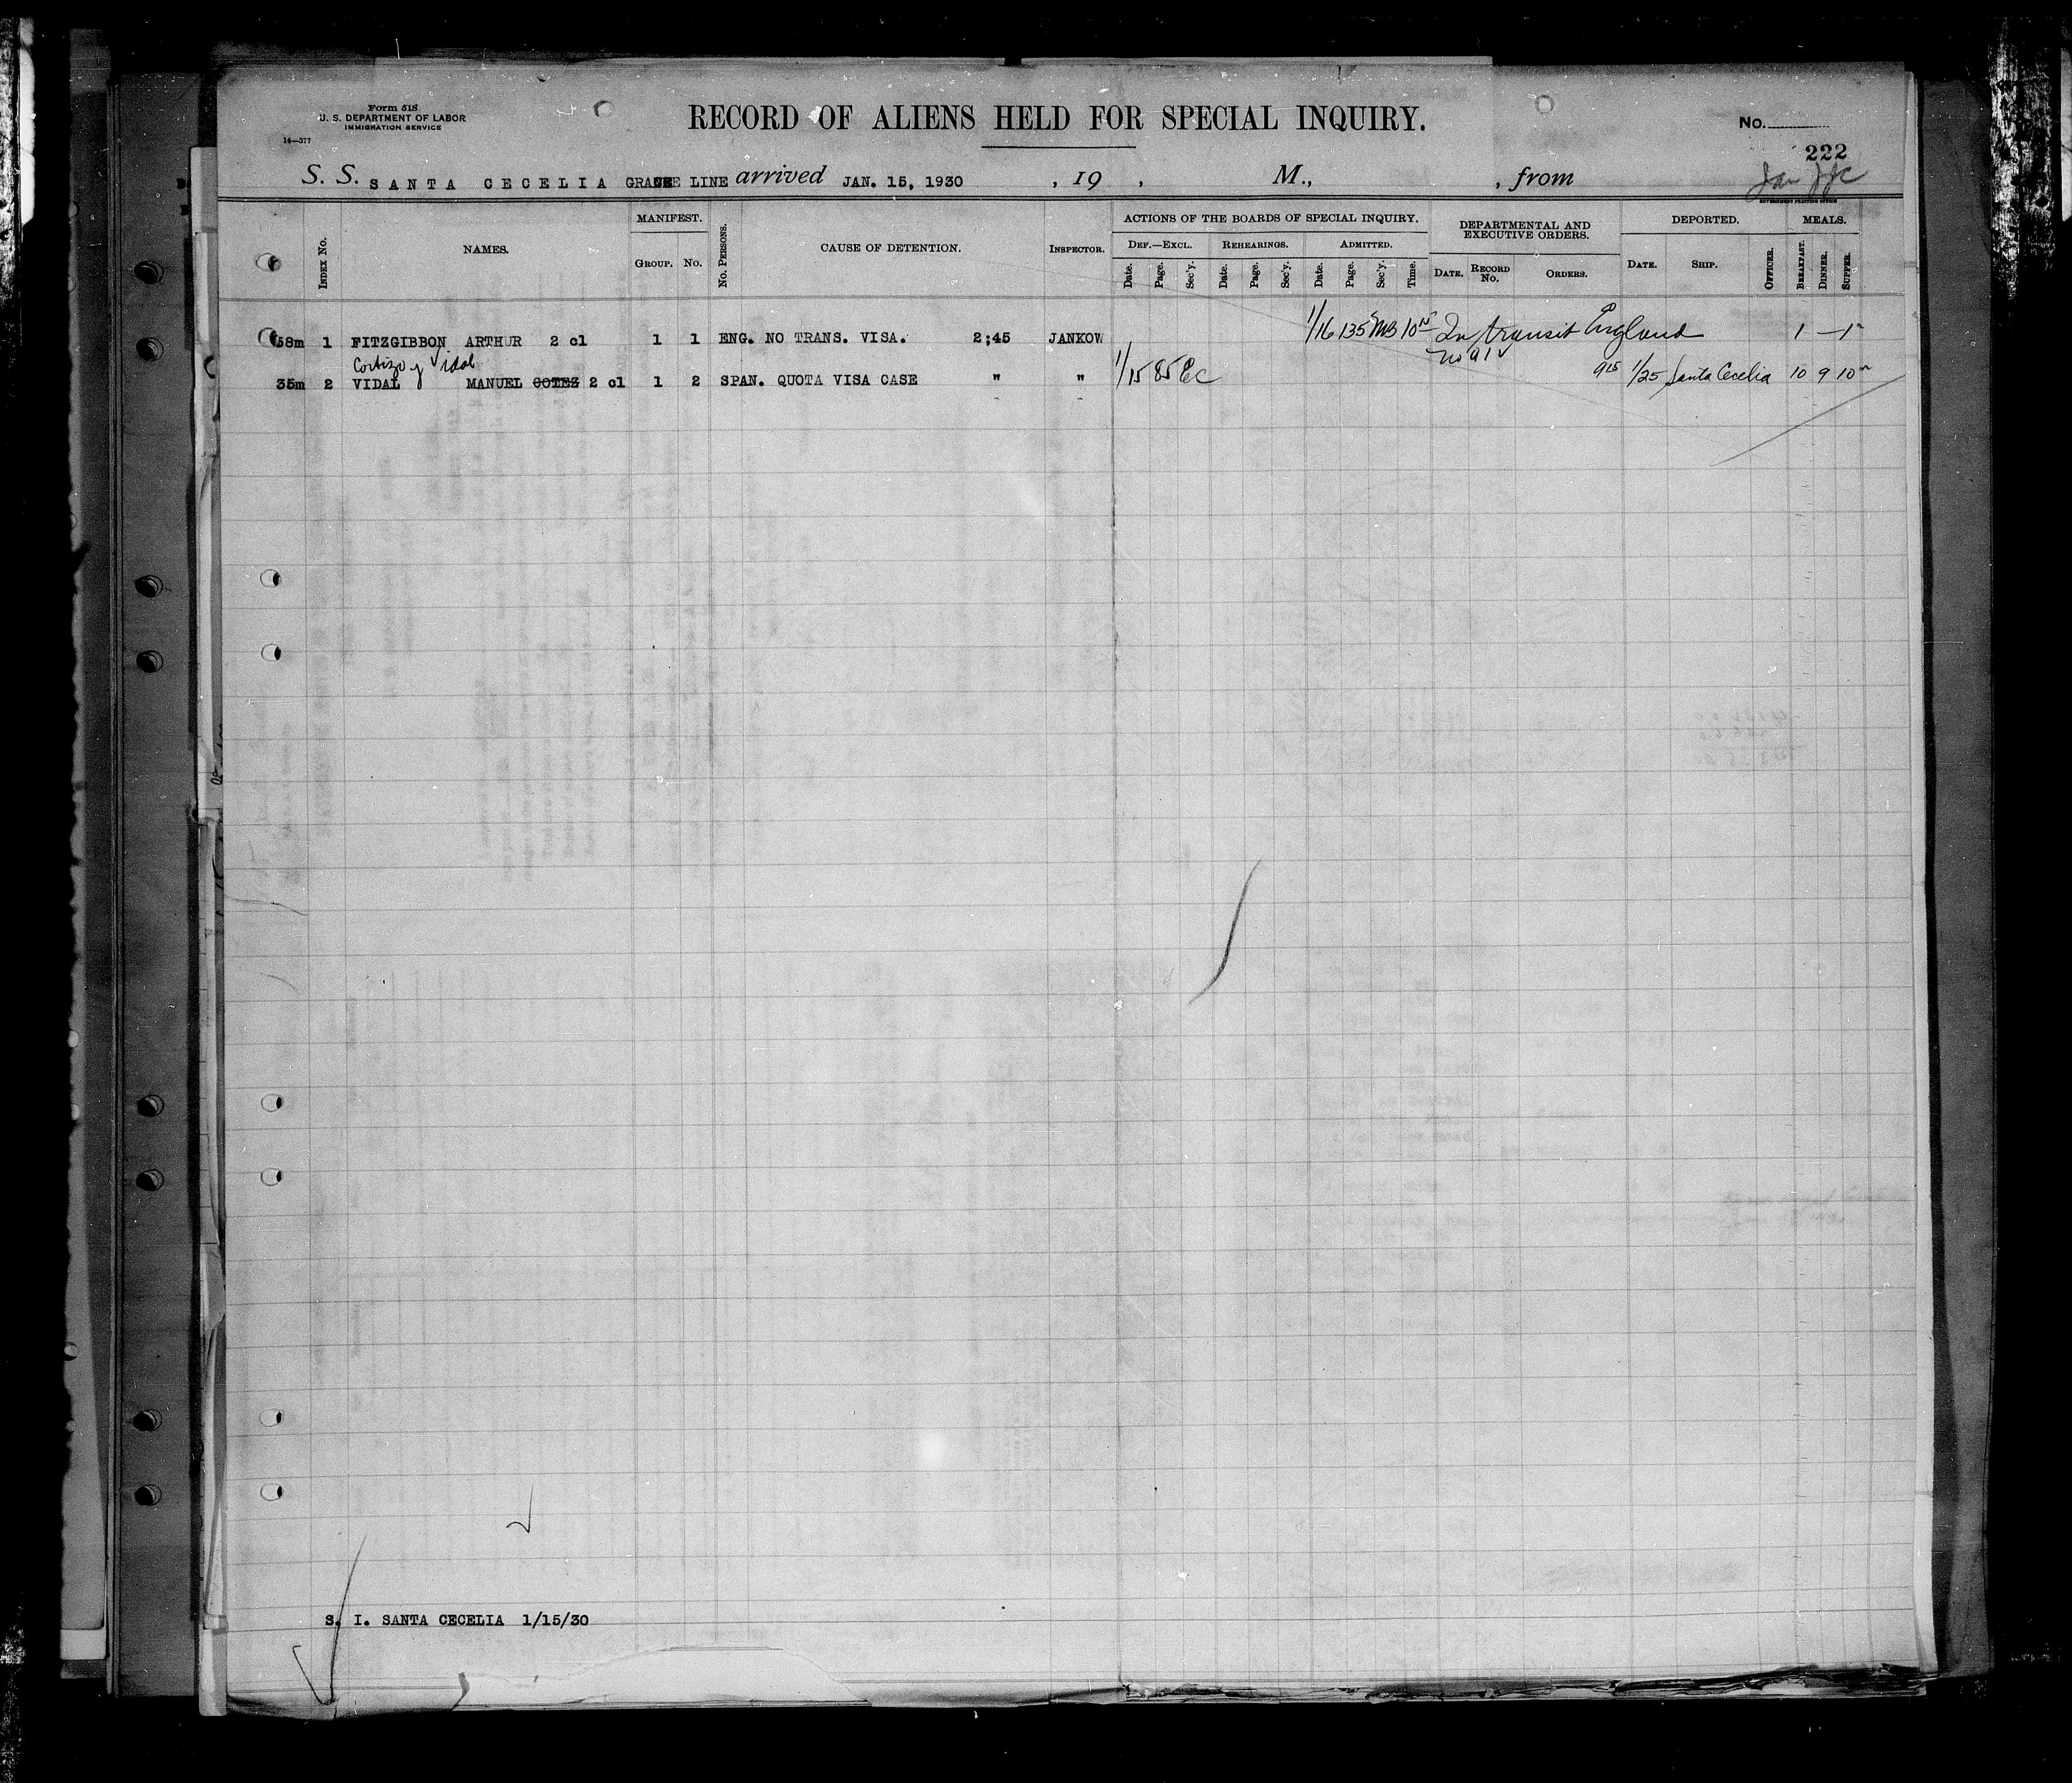 Form 518
U. S. DEPARTMENT OF LABOR
IMMIGRATION SERVICE
14—377
RECORD OF ALIENS HELD FOR SPECIAL INQUIRY.
No.
222
S. S. SANTA CECELIA GRACE LINE arrived JAN. 15, 1930 , 19 , M., , from
GOVERNMENT PRINTING OFFICE
INDEX No. NAMES. MANIFEST. GROUP. No. No. PERSONS. CAUSE OF DETENTION. INSPECTOR. ACTIONS OF THE BOARDS OF SPECIAL INQUIRY. DEPARTMENTAL AND EXECUTIVE ORDERS. DEPORTED. MEALS.
DEF.—EXCL. REHEARINGS. ADMITTED.
Date. Page. Sec'y. Date. Page. Sec'y. Date. Page. Sec'y. Time. DATE. RECORD No. ORDERS. DATE. SHIP. OFFICER. BREAKFAST. DINNER. SUPPER.
58m 1 FITZGIBBON ARTHUR 2 cl 1 1 ENG. NO TRANS. VISA. 2;45 JANKOW 1/16 135 MB 10 In transit England 1 — 1
Cortizo y Vidal
35m 2 VIDAL MANUEL COTEZ 2 cl 1 2 SPAN. QUOTA VISA CASE " " 1/15 85 EC 9 15 1/25 Santa Cecelia 10 9 10
S. I. SANTA CECELIA 1/15/30